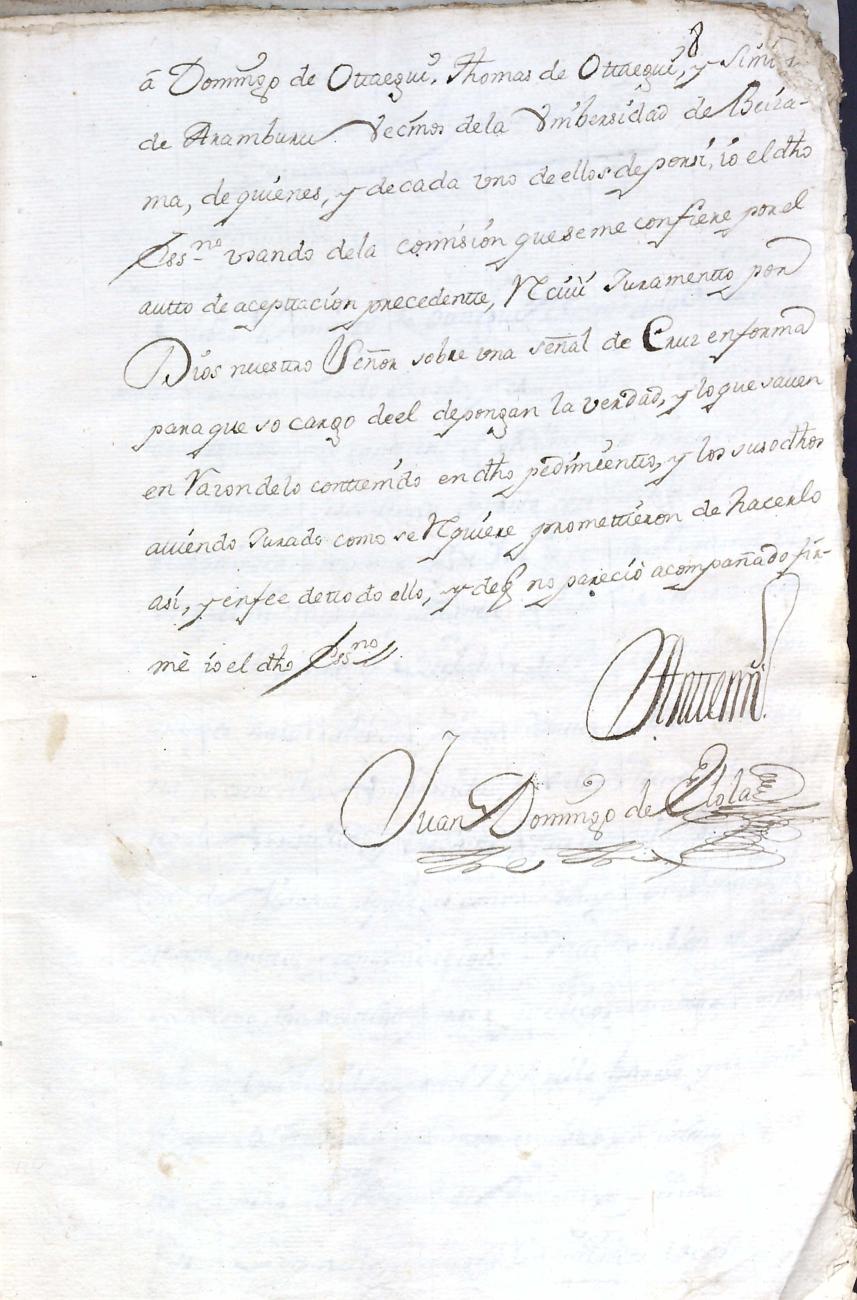 8
â Domingo de Ottaegui, Thomas de Ottaegui, y Simon
de Aramburu Vecinos de la Vnibersidad de Beiza-
ma, de quienes, y de cada vno de ellos de porsi, io el dho
Essno vsando de la comision que se me confiere por el
autto de aceptacion precedente, Reciui Juramento por
Dios nuestro Señor sobre vna señal de Cruz en forma
para que so cargo de el depongan la verdad, y lo que sauen
en Razon de lo conttenido en dho pedimiento, y los susodhos
auiendo Jurado como se Requiere promettieron de hacerlo
asi, y en fee de ttodo ello, y de q no pareciò acompañado fir-
mè io el dho Essno
Antemi
Juan Domingo de Elola